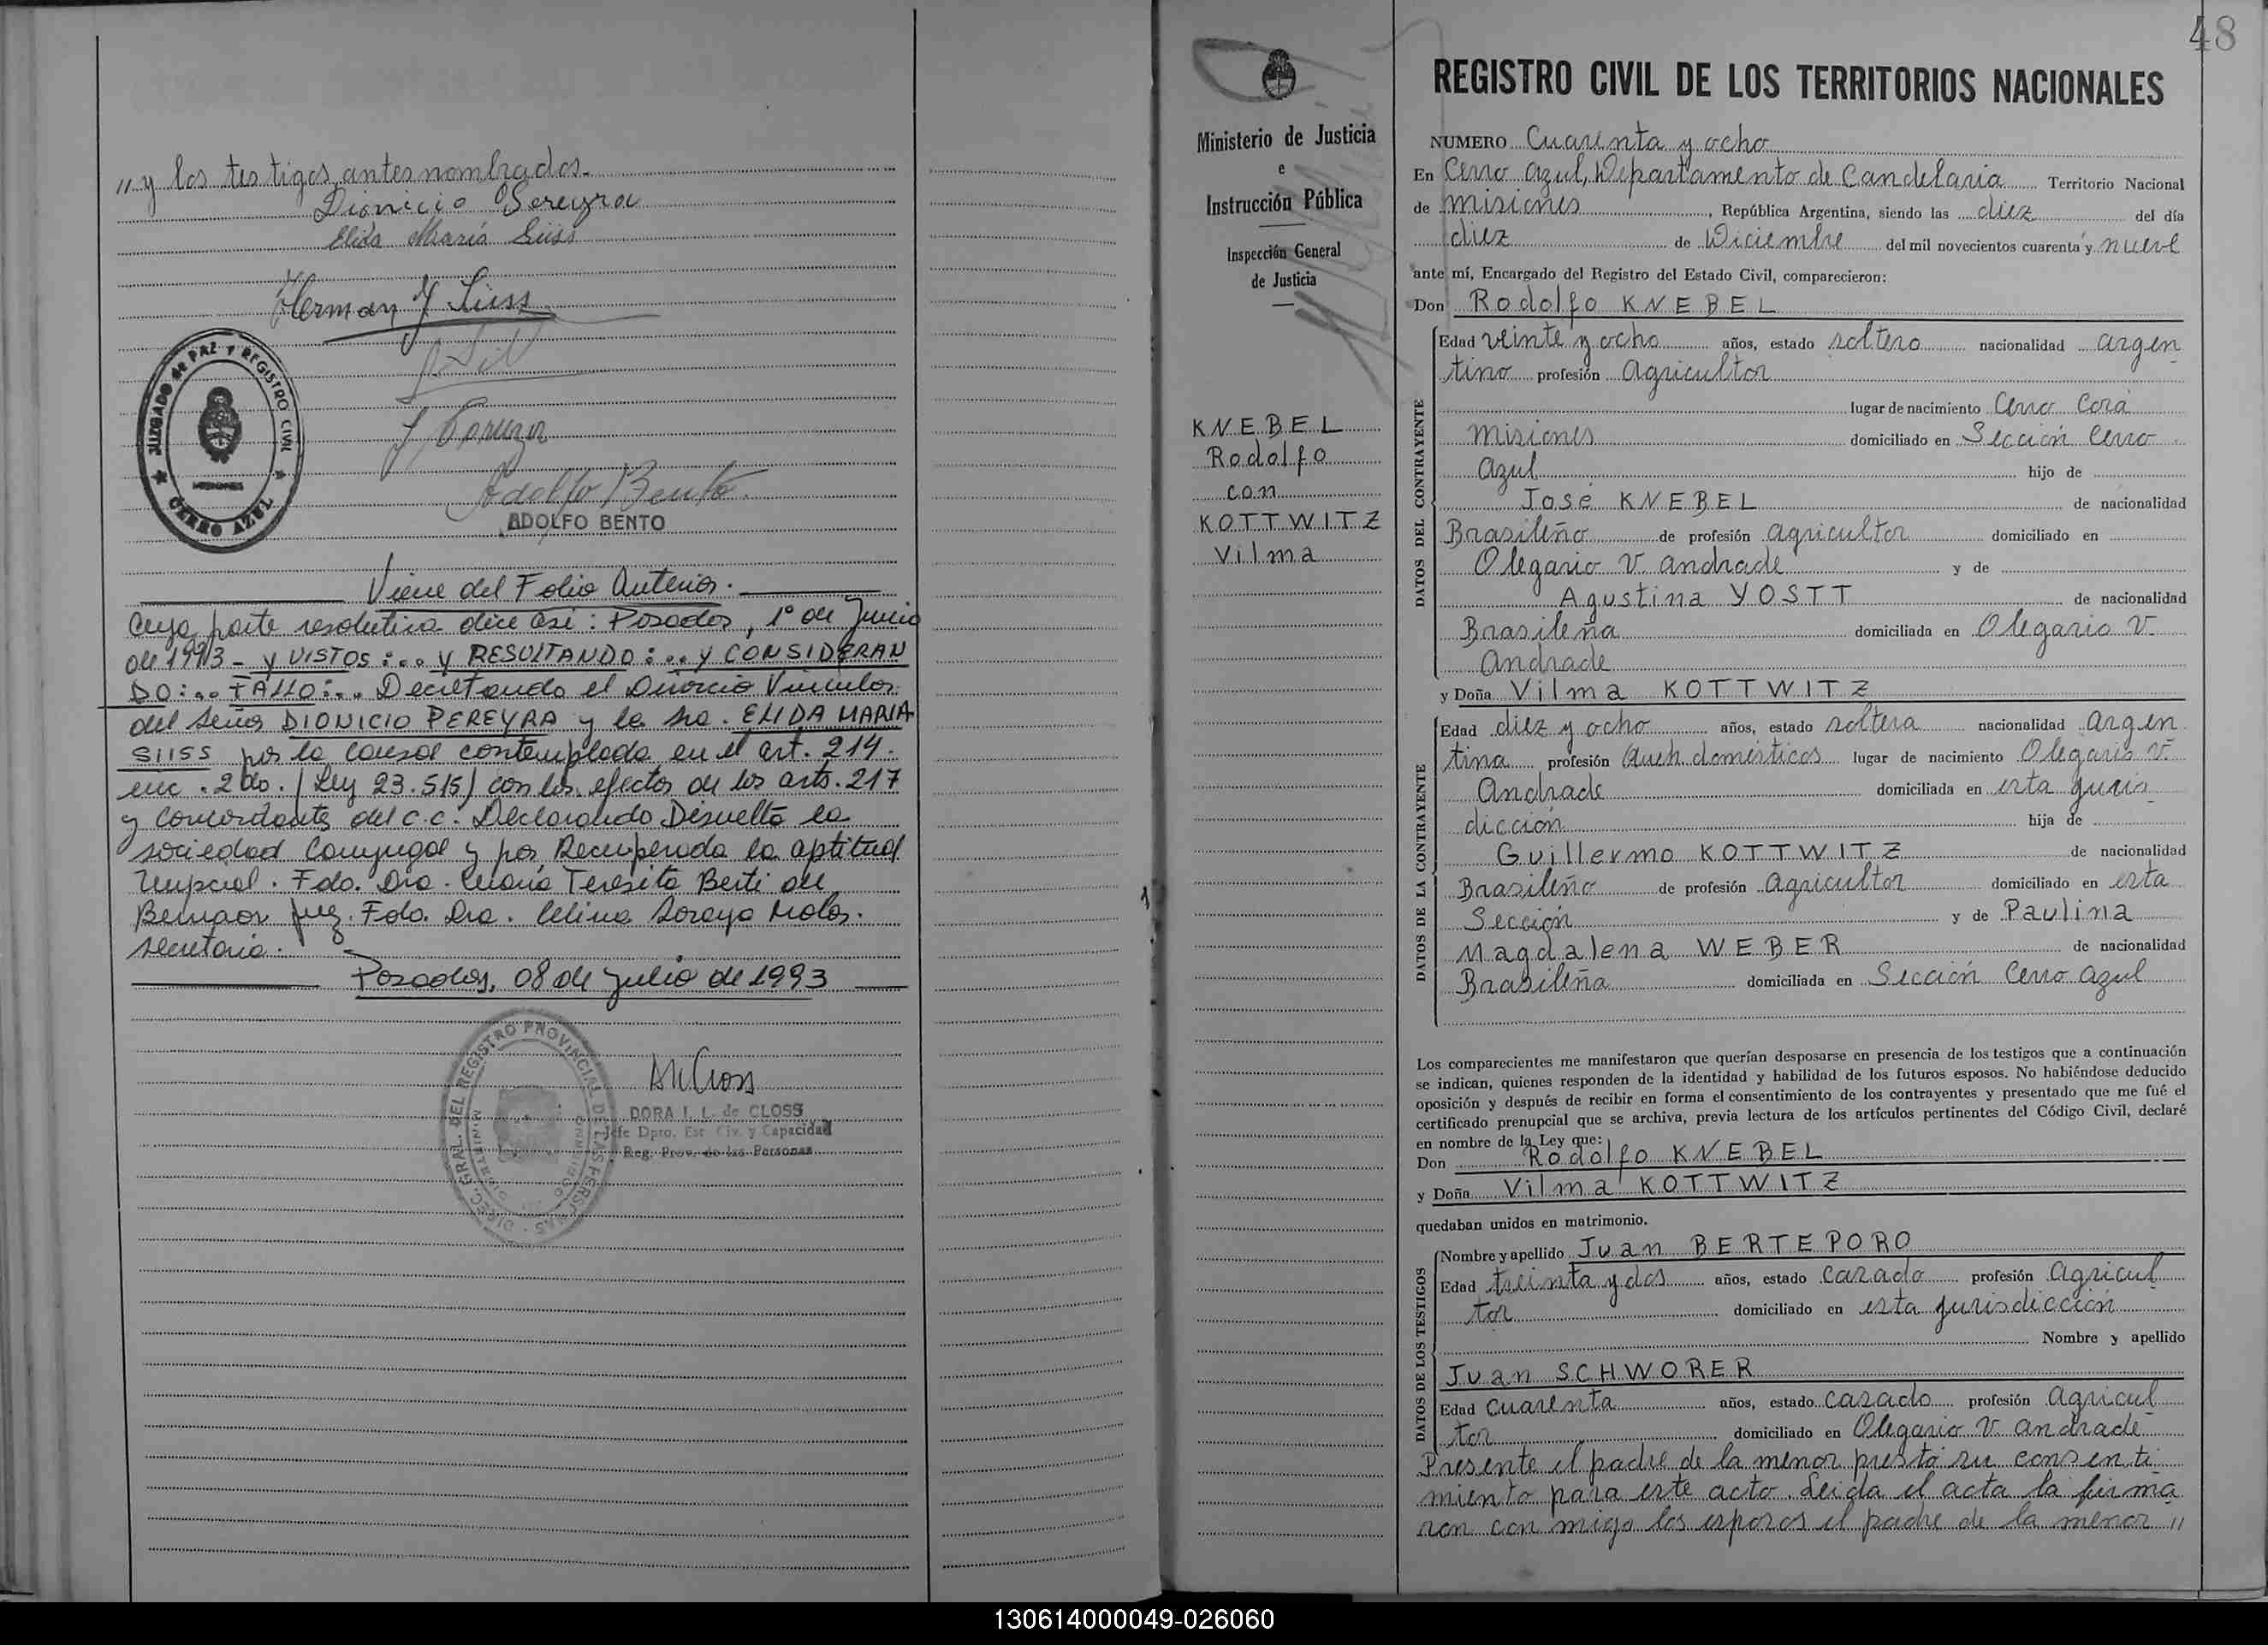 „ y los testigos antes nombrados.
Dionicio Pereyra
Elida Maria Süss
Herman J Süss
ADOLFO BENTO
JUZGADO de PAZ Y REGISTRO CIVIL
MISIONES
CERRO AZUL
Viene del Folio Anterior.
Cuya parte resolutiva dice así: Posadas, 1º de Junio
de 1993 - Y VISTOS:... Y RESULTANDO:... Y CONSIDERAN
DO:... FALLO:... Decretando el Divorcio Vincular
del señor DIONICIO PEREYRA y la sra. ELIDA MARIA
SIISS por la causal contemplada en el art. 214
inc. 2do. (Ley 23.515) con los efectos de los arts. 217
y concordantes del c.c. Declarando Disuelta la
sociedad Conyugal y por Recuperada la aptitud
Nupcial. Fdo. Dra. María Teresita Berti de
Juez. Fdo. Dra. Celina Soraya
secretaria.
Posadas, 08 de Julio de 1993
DORA I. L. de CLOSS
Jefe Dpto. Est. Civ. y Capacidad
Reg. Prov. de las Personas
DIREC. GRAL. DEL REGISTRO PROVINCIAL DE LAS PERSONAS
48
Ministerio de Justicia
e
Instrucción Pública
Inspección General
de Justicia
KNEBEL
Rodolfo
con
KOTTWITZ
Vilma
REGISTRO CIVIL DE LOS TERRITORIOS NACIONALES
NUMERO Cuarenta y ocho
En Cerro Azul, Departamento de Candelaria Territorio Nacional
de Misiones, República Argentina, siendo las diez del día
diez de Diciembre del mil novecientos cuarenta y nueve
ante mí, Encargado del Registro del Estado Civil, comparecieron:
Don Rodolfo KNEBEL
DATOS DEL CONTRAYENTE
Edad veinte y ocho años, estado soltero nacionalidad argen
tino profesión Agricultor
lugar de nacimiento Cerro Corá
Misiones domiciliado en Sección Cerro
Azul hijo de
José KNEBEL de nacionalidad
Brasileño de profesión agricultor domiciliado en
Olegario V. Andrade y de
Agustina YOSTT de nacionalidad
Brasileña domiciliada en Olegario V.
Andrade
y Doña Vilma KOTTWITZ
DATOS DE LA CONTRAYENTE
Edad diez y ocho años, estado soltera nacionalidad argen
tina profesión Queh. domésticos lugar de nacimiento Olegario V.
Andrade domiciliada en esta juris
dicción hija de
Guillermo KOTTWITZ de nacionalidad
Brasileño de profesión Agricultor domiciliado en esta
Sección y de Paulina
Magdalena WEBER de nacionalidad
Brasileña domiciliada en Sección Cerro Azul
Los comparecientes me manifestaron que querían desposarse en presencia de los testigos que a continuación
se indican, quienes responden de la identidad y habilidad de los futuros esposos. No habiéndose deducido
oposición y después de recibir en forma el consentimiento de los contrayentes y presentado que me fué el
certificado prenupcial que se archiva, previa lectura de los artículos pertinentes del Código Civil, declaré
en nombre de la Ley que:
Don Rodolfo KNEBEL
y Doña Vilma KOTTWITZ
quedaban unidos en matrimonio.
DATOS DE LOS TESTIGOS
Nombre y apellido Juan BERTEPORO
Edad treinta y dos años, estado casado profesión Agricul
tor domiciliado en esta jurisdicción
Nombre y apellido
Juan SCHWORER
Edad cuarenta años, estado casado profesión agricul
tor domiciliado en Olegario V. Andrade
Presente el padre de la menor prestó su consenti
miento para este acto. Leida el acta la firma
ron con migo los esposos el padre de la menor „
130614000049-026060